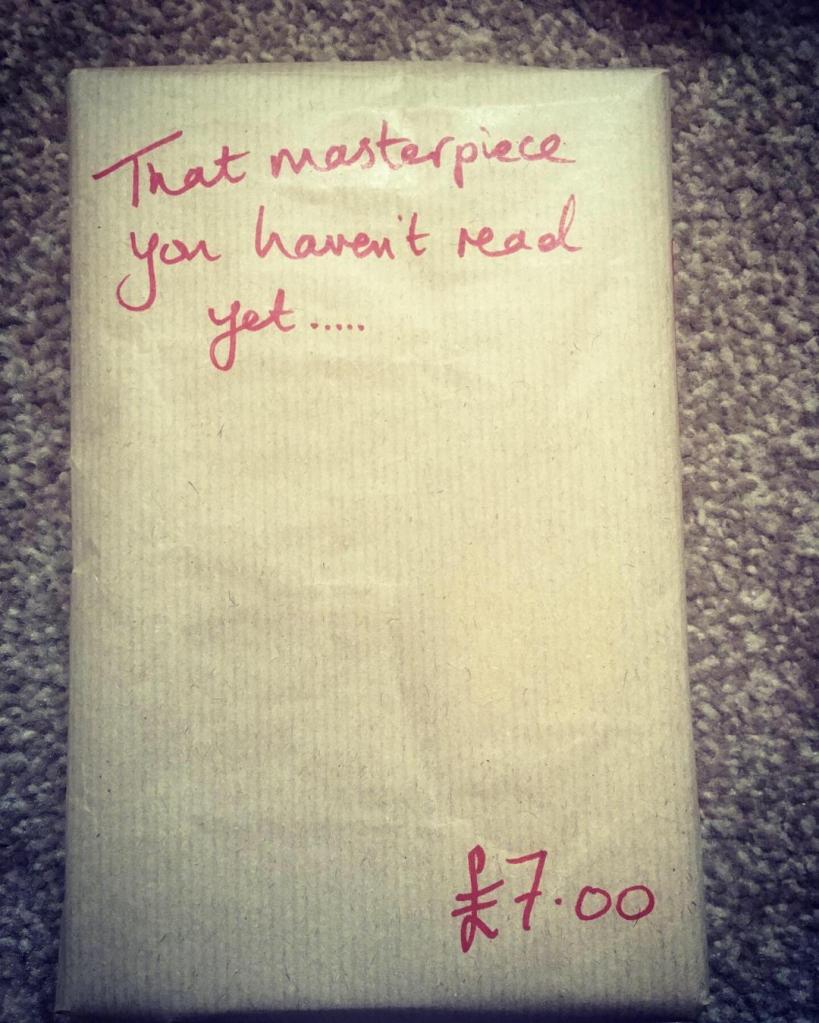 That masterpiece
you haven't read
yet.....
£7.00